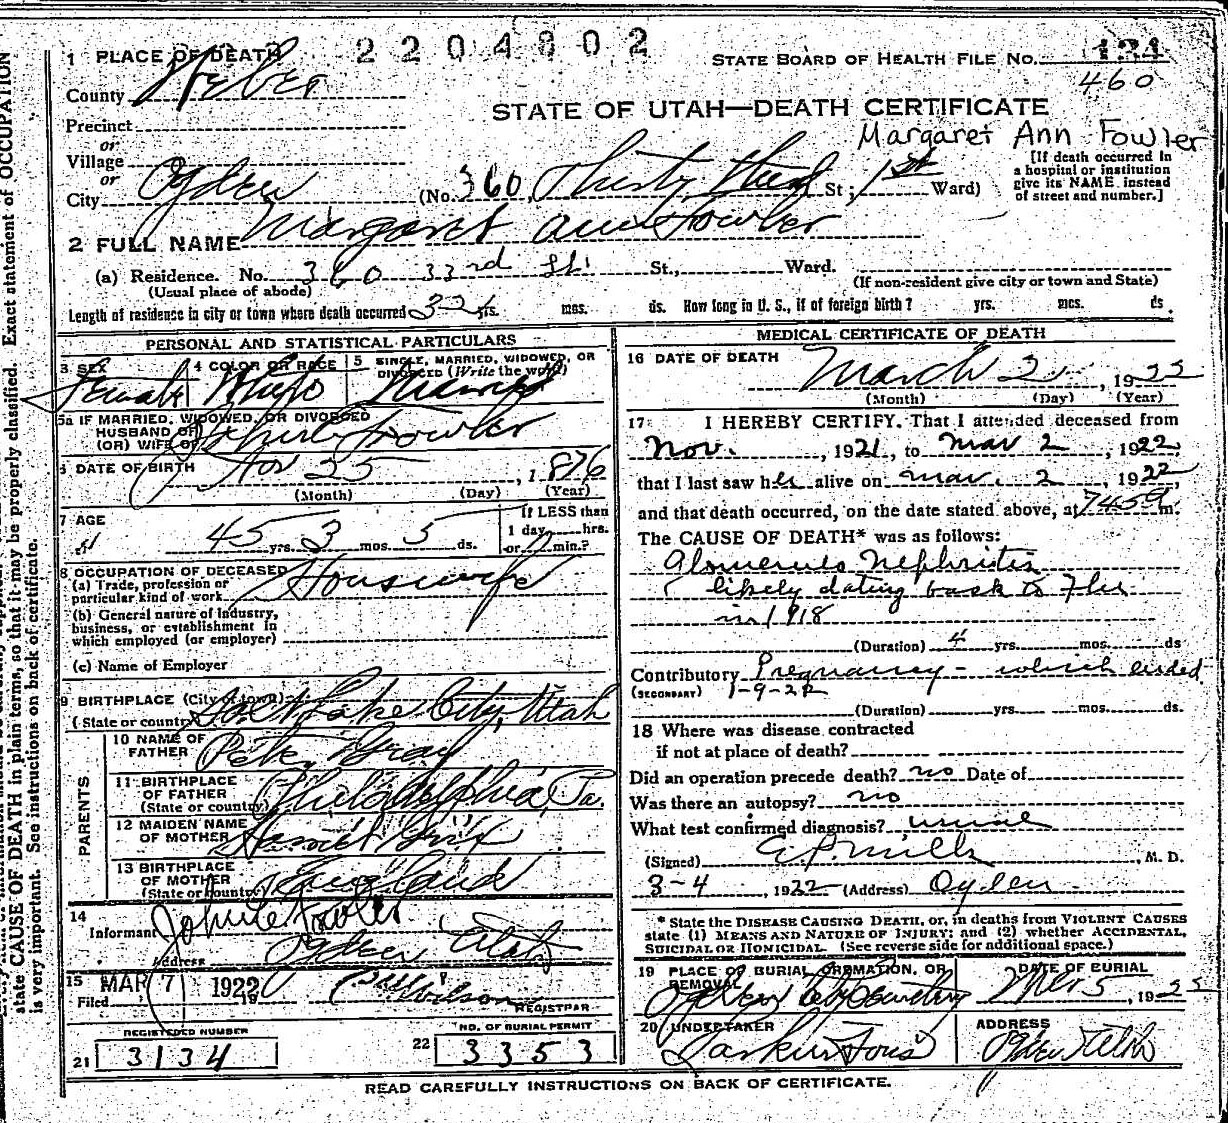 2204802
1 PLACE OF DEATH
STATE BOARD OF HEALTH FILE No. 134
460
County Weber
STATE OF UTAH—DEATH CERTIFICATE
Precinct
Margaret Ann Fowler
or
Village
or
City Ogden (No. 360, Thirty Third St; 1st Ward)
[If death occurred in
a hospital or institution
give its NAME instead
of street and number.]
2 FULL NAME Margaret Ann Fowler
(a) Residence. No. 360 33rd St. St., Ward.
(Usual place of abode) (If non-resident give city or town and State)
Length of residence in city or town where death occurred 32 yrs. mos. ds. How long in U. S., if of foreign birth? yrs. mos. ds.
PERSONAL AND STATISTICAL PARTICULARS
3 SEX Female
4 COLOR OR RACE White
5 SINGLE, MARRIED, WIDOWED, OR
DIVORCED (Write the word) Married
5a IF MARRIED, WIDOWED, OR DIVORCED
HUSBAND OF
(OR) WIFE OF Fowler
6 DATE OF BIRTH Nov 25, 1876
(Month) (Day) (Year)
7 AGE 45 yrs. 3 mos. 5 ds.
If LESS than
1 day hrs.
or min.?
8 OCCUPATION OF DECEASED
(a) Trade, profession or
particular kind of work Housewife
(b) General nature of industry,
business, or establishment in
which employed (or employer)
(c) Name of Employer
9 BIRTHPLACE (City or town)
(State or country) Salt Lake City, Utah
PARENTS
10 NAME OF
FATHER Peter Gray
11 BIRTHPLACE
OF FATHER
(State or country) Philadelphia, Pa.
12 MAIDEN NAME
OF MOTHER
13 BIRTHPLACE
OF MOTHER
(State or country) England
14
Informant Johnie Fowler
Address Ogden Utah
15 MAR 7 1922
Filed 19 Wilson
REGISTRAR
REGISTERED NUMBER
21 3134
NO. OF BURIAL PERMIT
22 3353
MEDICAL CERTIFICATE OF DEATH
16 DATE OF DEATH
March 2, 1922
(Month) (Day) (Year)
17 I HEREBY CERTIFY. That I attended deceased from
Nov., 1921, to Mar 2, 1922,
that I last saw her alive on Mar. 2, 1922,
and that death occurred, on the date stated above, at 745 a m.
The CAUSE OF DEATH* was as follows:
Glomerulo Nephritis
(likely dating back to Flu
in 1918
(Duration) 4 yrs. mos. ds
Contributory Pregnancy - which ended
(SECONDARY) 1-9-22
(Duration) yrs. mos. ds.
18 Where was disease contracted
if not at place of death?
Did an operation precede death? no Date of
Was there an autopsy? no
What test confirmed diagnosis? urine
(Signed) E.P. Mills, M. D.
3-4, 1922 (Address) Ogden
* State the DISEASE CAUSING DEATH, or, in deaths from VIOLENT CAUSES
state (1) MEANS AND NATURE OF INJURY; and (2) whether ACCIDENTAL,
SUICIDAL OR HOMICIDAL. (See reverse side for additional space.)
19 PLACE OF BURIAL, CREMATION, OR
REMOVAL
Ogden City Cemetery
DATE OF BURIAL
Mch 5, 1922
20 UNDERTAKER
Larkin & Sons
ADDRESS
Ogden Utah
READ CAREFULLY INSTRUCTIONS ON BACK OF CERTIFICATE.
state CAUSE OF DEATH in plain terms, so that it may be properly classified. Exact statement of OCCUPATION
is very important. See instructions on back of certificate.